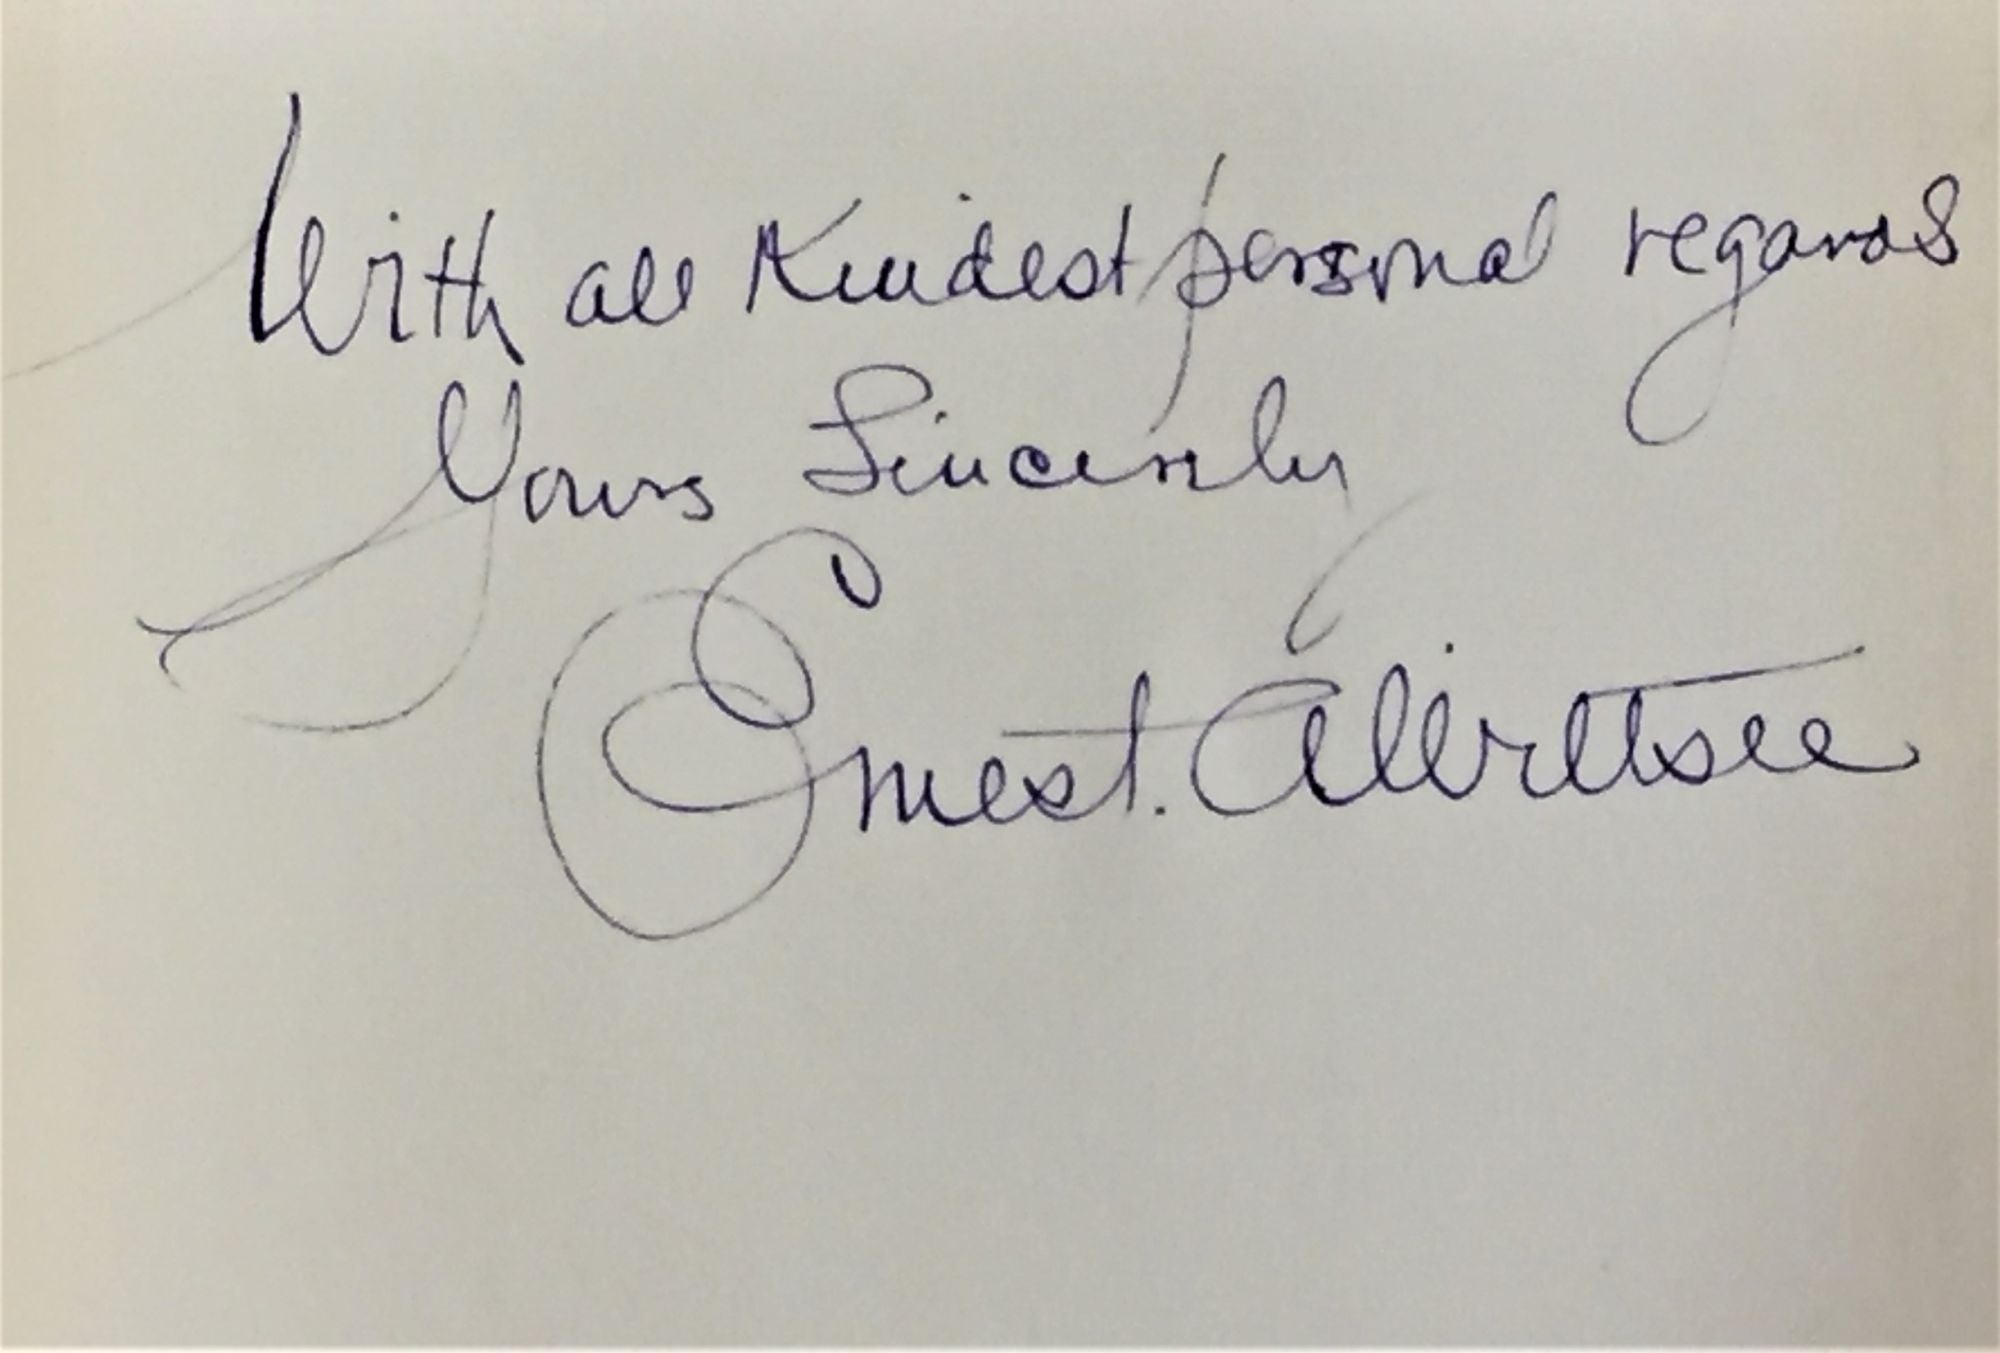 With all Kindest personal regards
Yours Sincerely
Ernest.